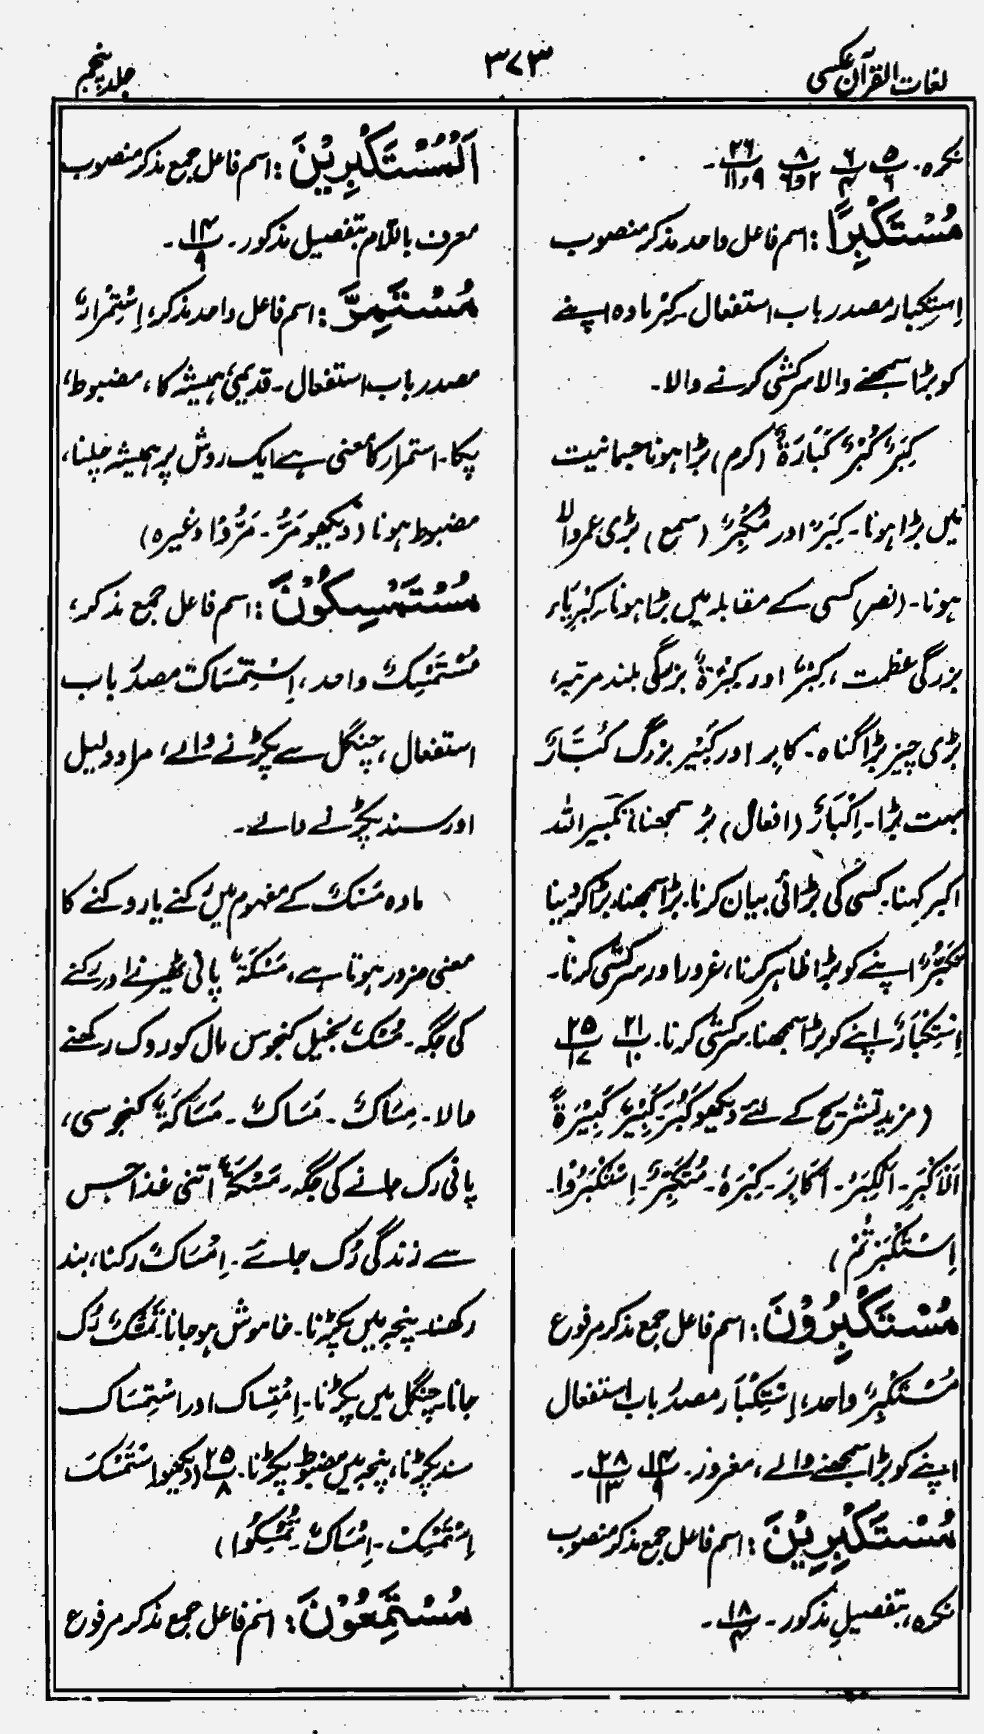 لغات القرآن عکسی
۳۷۳
جلد پنجم
نکرہ۔ پ۵/۶ پ۶/۴ پ۸/۲و۶ پ۲۶/۹و۱۱۔
مُسْتَكْبِرًا: اسم فاعل واحد مذکر منصوب
اِستِکبار مصدر باب استفعال کِبْر مادہ اپنے
کو بڑا سمجھنے والا سرکشی کرنے والا۔
کِبَرٌ کُبْرٌ کَبَارَۃٌ (کرم) بڑا ہونا جسمانیت
میں بڑا ہونا۔ کِبَرٌ اور مَکْبِرٌ (سمع) بڑی عمر والا
ہونا۔ (نصر) کسی کے مقابلہ میں بڑا ہونا کِبْرِیَاء
بزرگی عظمت، کِبْرٌ اور کِبْرَۃٌ بزرگی بلند مرتبہ،
بڑی چیز بڑا گناہ۔ کابر اور کَبِیْر بزرگ کُبَّارٌ
بہت بڑا۔ اِکْبَارٌ (افعال) بڑا سمجھنا تکبیر اللہ
اکبر کہنا۔ کسی کی بڑائی بیان کرنا۔ بڑا سمجھنا، بڑا کر دینا
تَکَبُّرٌ اپنے کو بڑا ظاہر کرنا، غرور اور سرکشی کرنا۔
اِسْتِکْبَارٌ اپنے کو بڑا سمجھنا۔ سرکشی کرنا۔ پ۲۱/۱۰ پ۲۵/۱۷
(مزید تشریح کے لئے دیکھو کَبُرَ۔ کَبِیْرٌ کَبِیْرَۃً
اَلْاَکْبَرِ۔ اَلْکِبَرُ۔ اَکَابِرَ۔ کِبْرَہٗ۔ مُتَکَبِّرٌ۔ اِسْتَکْبَرُوْا۔
اِسْتَکْبَرْتُمْ)
مُسْتَكْبِرُوْنَ: اسم فاعل جمع مذکر مرفوع
مُسْتَکْبِرٌ واحد، اِسْتِکْبَار مصدر باب استفعال
اپنے کو بڑا سمجھنے والے، مغرور۔ پ۱۴/۹ پ۲۸/۱۳۔
مُسْتَكْبِرِيْنَ: اسم فاعل جمع مذکر منصوب
نکرہ، بتفصیل مذکور۔ پ۱۸/۴۔
اَلْمُسْتَكْبِرِيْنَ: اسم فاعل جمع مذکر منصوب
معرف باللام بتفصیل مذکور۔ پ۱۴/۹۔
مُسْتَمِرٌّ: اسم فاعل واحد مذکر، اِسْتِمْرَارٌ
مصدر باب استفعال۔ قدیمی ہمیشہ کا، مضبوط،
پکا۔ استمرار کا معنی ہے ایک روش پر ہمیشہ چلنا،
مضبوط ہونا (دیکھو مَرَّ۔ مَرُّوْا وغیرہ)
مُسْتَمْسِكُوْنَ: اسم فاعل جمع مذکر؛
مُسْتَمْسِکٌ واحد، اِسْتِمْسَاکٌ مصدر باب
استفعال، چنگل سے پکڑنے والے، مراد دلیل
اور سند پکڑنے والے۔
مادہ مَسْکٌ کے مفہوم میں رُکنے یا روکنے کا
معنی ضرور ہوتا ہے، مَسَکَۃٌ پانی ٹھیرنے اور رکنے
کی جگہ۔ مُسُکٌ بخیل کنجوس مال کو روک رکھنے
والا۔ مِسَاکٌ۔ مَسَاکٌ۔ مَسَاکَۃٌ کنجوسی،
پانی رک جانے کی جگہ۔ مَسْکَۃٌ اتنی غذا جس
سے زندگی رُک جائے۔ اِمْسَاکٌ رکنا، بند
رکھنا۔ پنجہ میں پکڑنا۔ خاموش ہو جانا تَمَسُّکٌ رُک
جانا۔ چنگل میں پکڑنا۔ اِمْتِسَاک اور اسْتِمسَاک
سند پکڑنا، پنجہ میں مضبوط پکڑنا۔ پ۲۵/۸ (دیکھو اسْتَمْسَکَ
اِسْتَمْسِکْ۔ اِمْسَاکٌ۔ تُمْسِکُوْا)
مُسْتَمِعُوْنَ: اسم فاعل جمع مذکر مرفوع